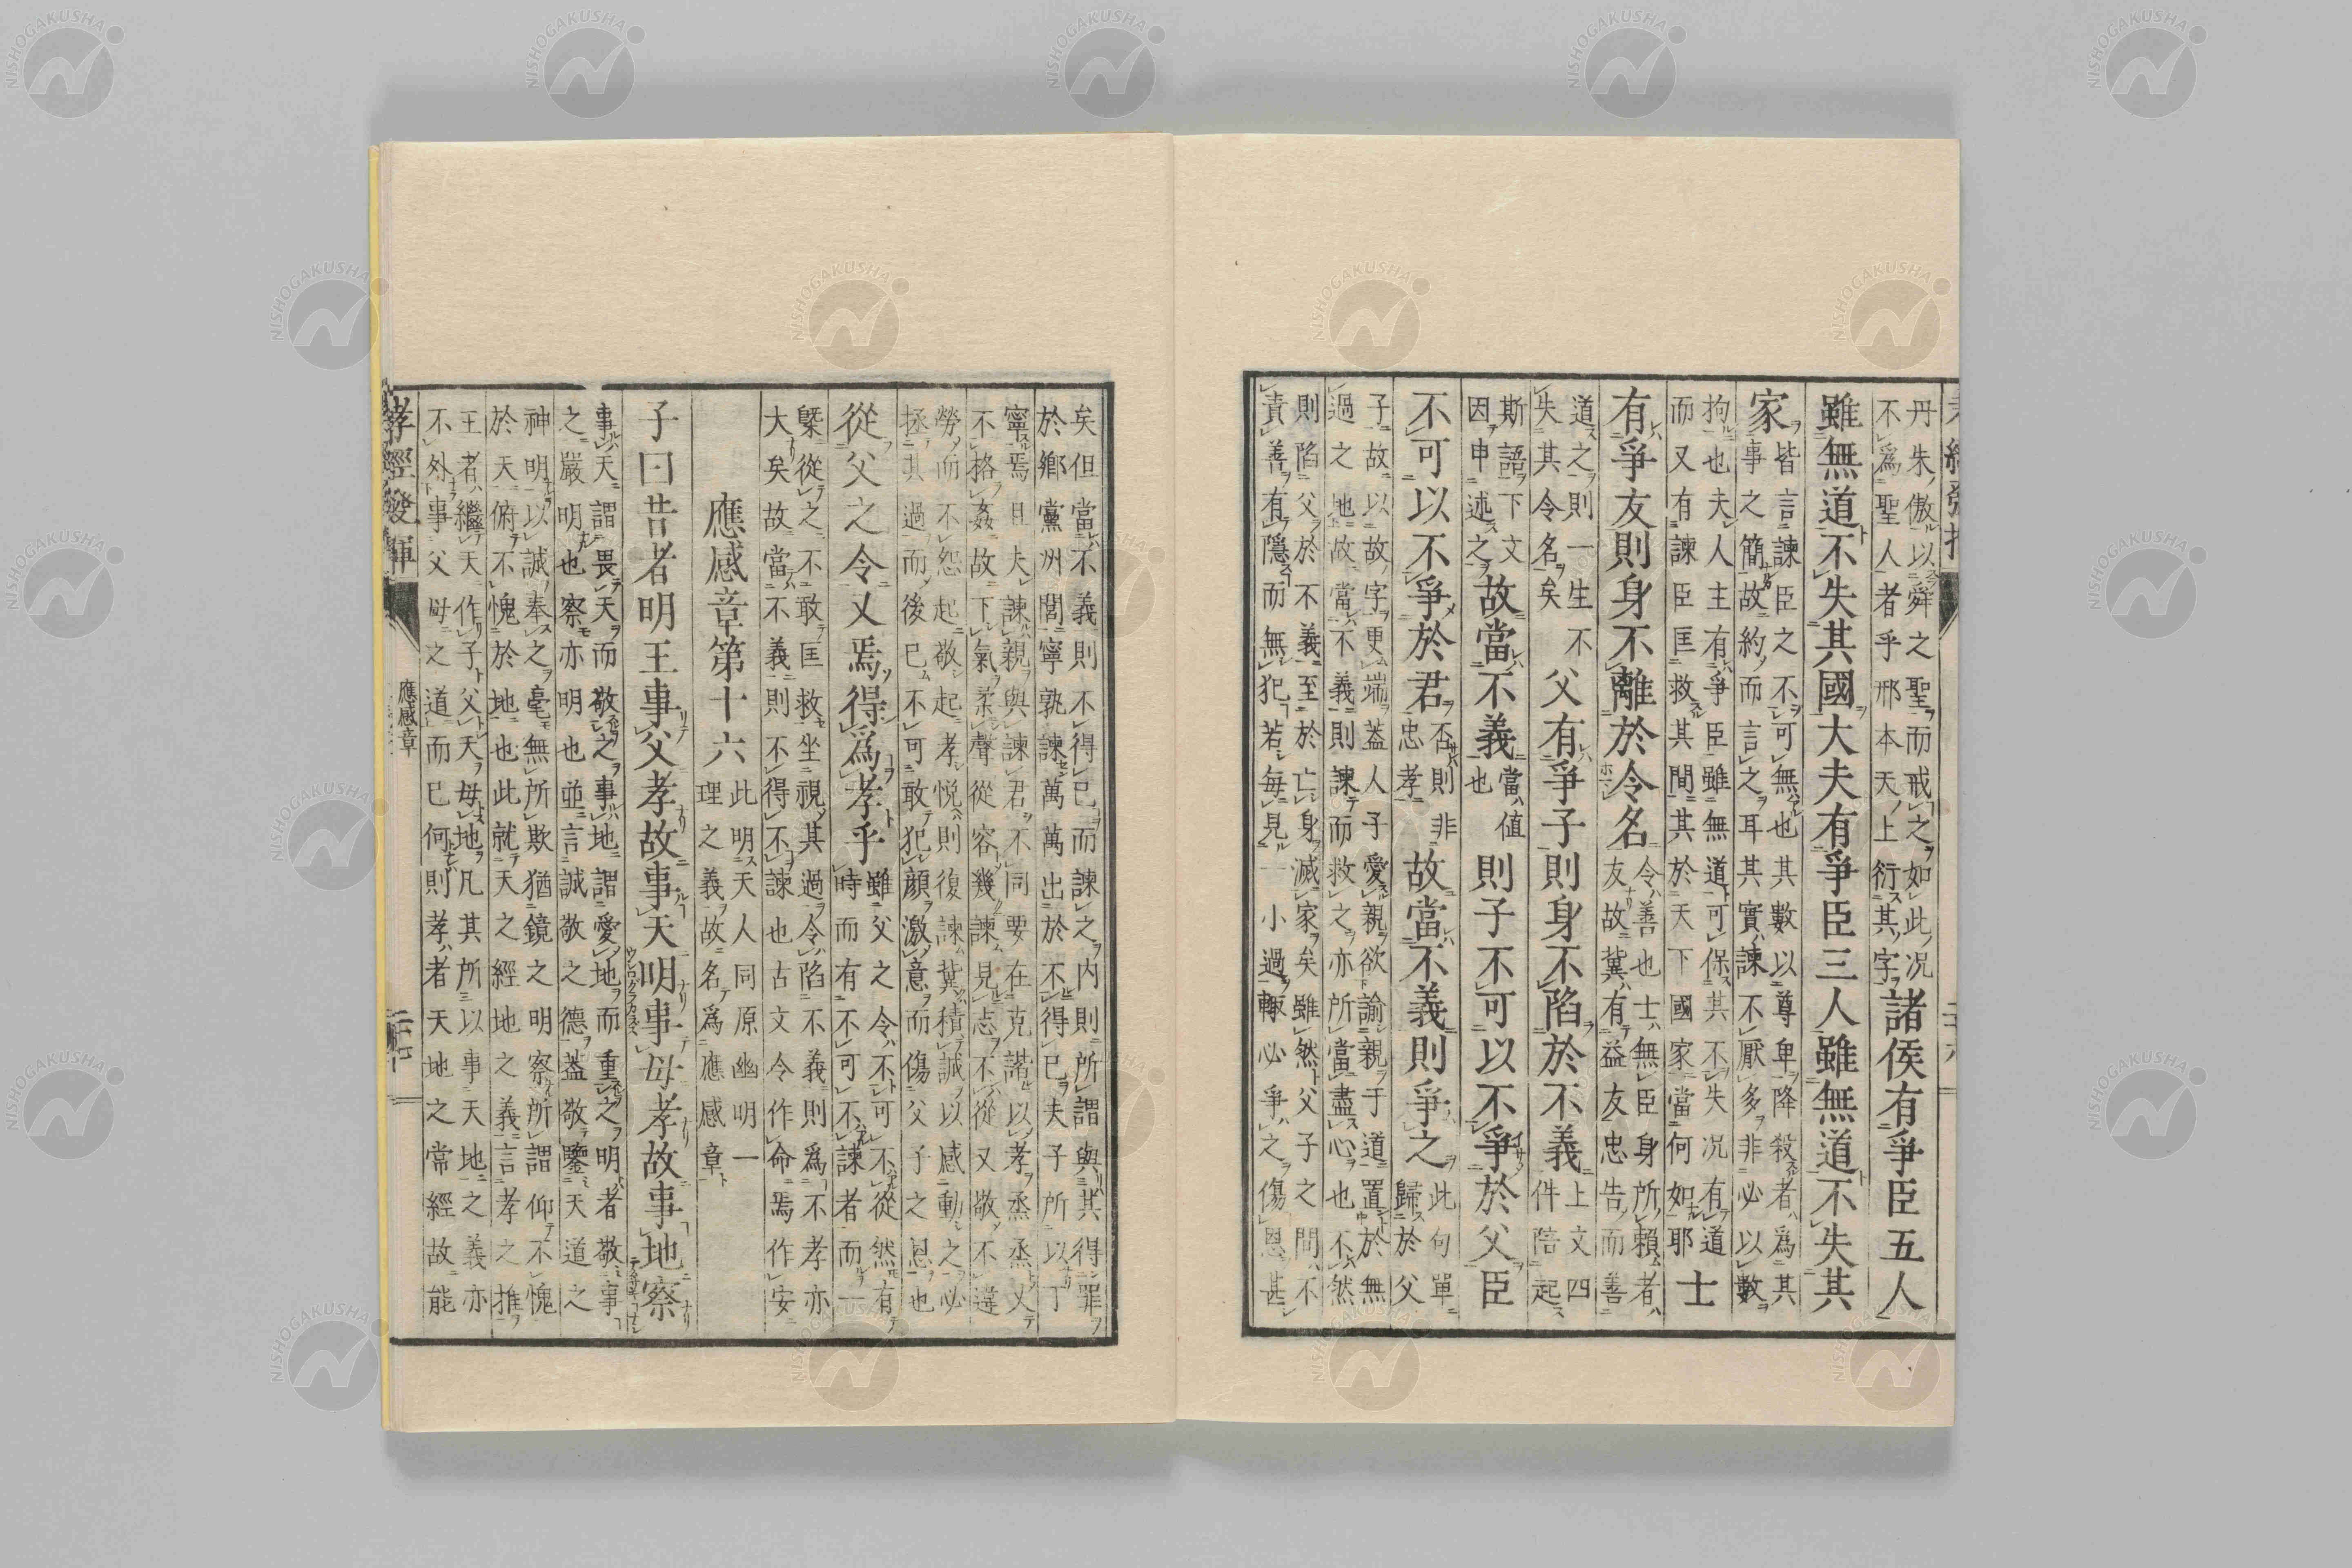 丹朱傲以舜之聖而戒之如此况
不爲聖人者乎邢本天上衍其字
諸侯有爭臣五人
雖無道不失其國大夫有爭臣三人雖無道不失其
家
皆言諫臣之不可無也其數以尊卑降殺者爲其
事之簡故約而言之耳其實諫不厭多非必以數
拘也夫人主有爭臣雖無道可保其不失况有道
而又有諫臣匡救其間其於天下國家當何如耶
士
有爭友則身不離於令名
令善也士無臣身所賴者
友故冀有益友忠告而善
道之則一生不
失其令名矣
父有爭子則身不陷於不義
上文四
件陪起
斯語下文
因申述之
故當不義
當値
也
則子不可以不爭於父臣
不可以不爭於君
否則非
忠孝
故當不義則爭之
此句單
歸於父
子故以故字更端蓋人子愛親欲諭親于道置於無
過之地故當不義則諫而救之亦所當盡心也不然
則陷父於不義至於亡身滅家矣雖然父子之間不
責善有隱而無犯若每見一小過輙必爭之傷恩甚
矣但當不義則不得已而諫之内則所謂與其得罪
於鄉黨洲閭寧孰諫萬萬出於不得已夫子所以丁
寧焉且夫諫親與諫君不同要在克諧以孝烝烝乂
不格姦故下氣柔聲從容幾諫見志不從又敬不違
勞而不怨起敬起孝悦則復諫冀積誠以感動之必
拯其過而後已不可敢犯顔激意而傷父子之恩也
從父之令又焉得爲孝乎
雖父之令不可不從然有
時而有不可不諫者而一
槩從之不敢匡救坐視其過令陷不義則爲不孝亦
大矣故當不義則不得不諫也古文令作命焉作安
應感章第十六
此明天人同原幽明一
理之義故名爲應感章
子曰昔者明王事父孝故事天明事母孝故事地察
事天謂畏天而敬之事地謂愛地而重之明者敬事
之嚴明也察亦明也並言誠敬之德蓋敬鑒天道之
神明以誠奉之毫無所欺猶鏡之明察所謂仰不愧
於天俯不愧於地也此就天之經地之義言孝之推
王者繼天作子父天母地凡其所以事天地之義亦
不外事父母之道而已何則孝者天地之常經故能
孝經發揮
應感章
二十七